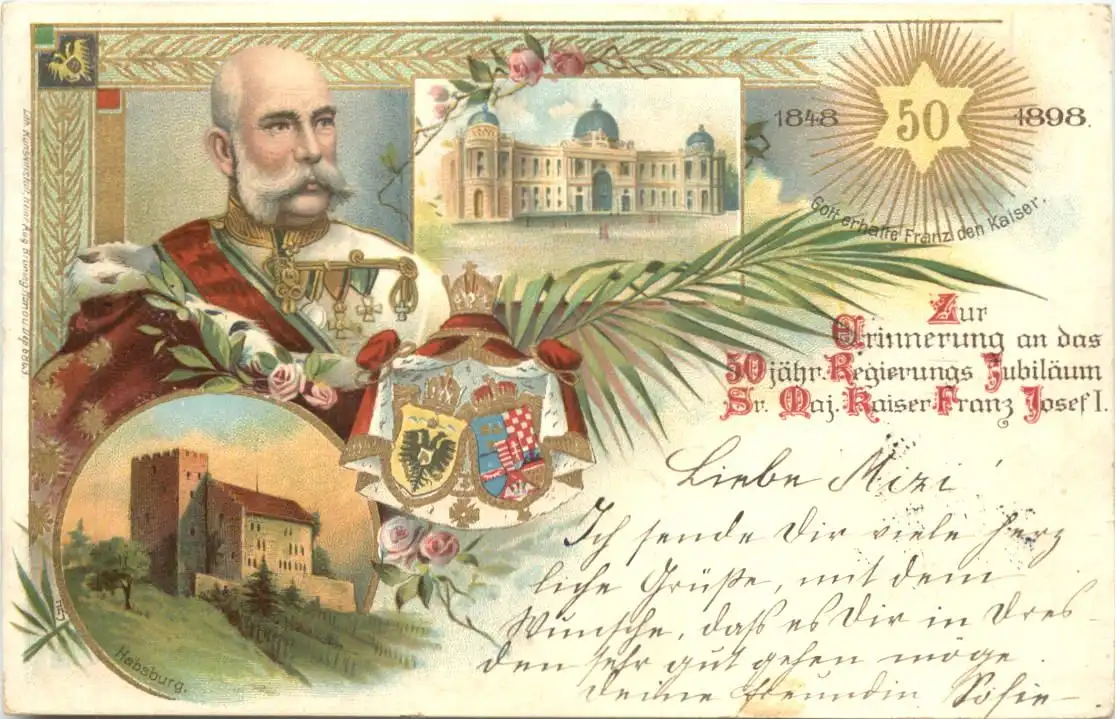 1848 50 1898.
Gott erhalte Franz den Kaiser.
Zur
Erinnerung an das
50 jähr. Regierungs Jubiläum
Sr. Maj. Kaiser Franz Josef I.
Liebe Mizi
Ich sende Dir viele herz
liche Grüße, mit dem
Wunsche, daß es Dir in Dres
den sehr gut gehen möge.
Deine Freundin Sofie
Habsburg.